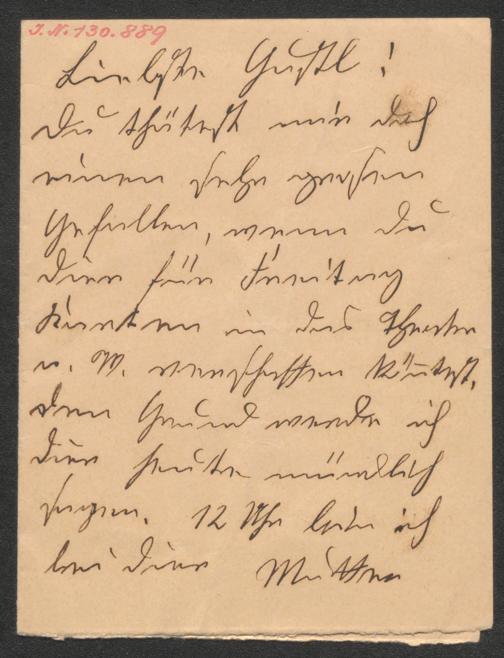 I.N. 130.889
Liebste Gustl!
Du thätest mir doch
einen sehr großen
Gefallen, wenn Du
Dier für Freitag
Karten in das Theater
a. W. verschaffen könntest,
den Grund werde ich
Dier heute mündlich
sagen. 12 Uhr bin ich
bei Dier Mutter